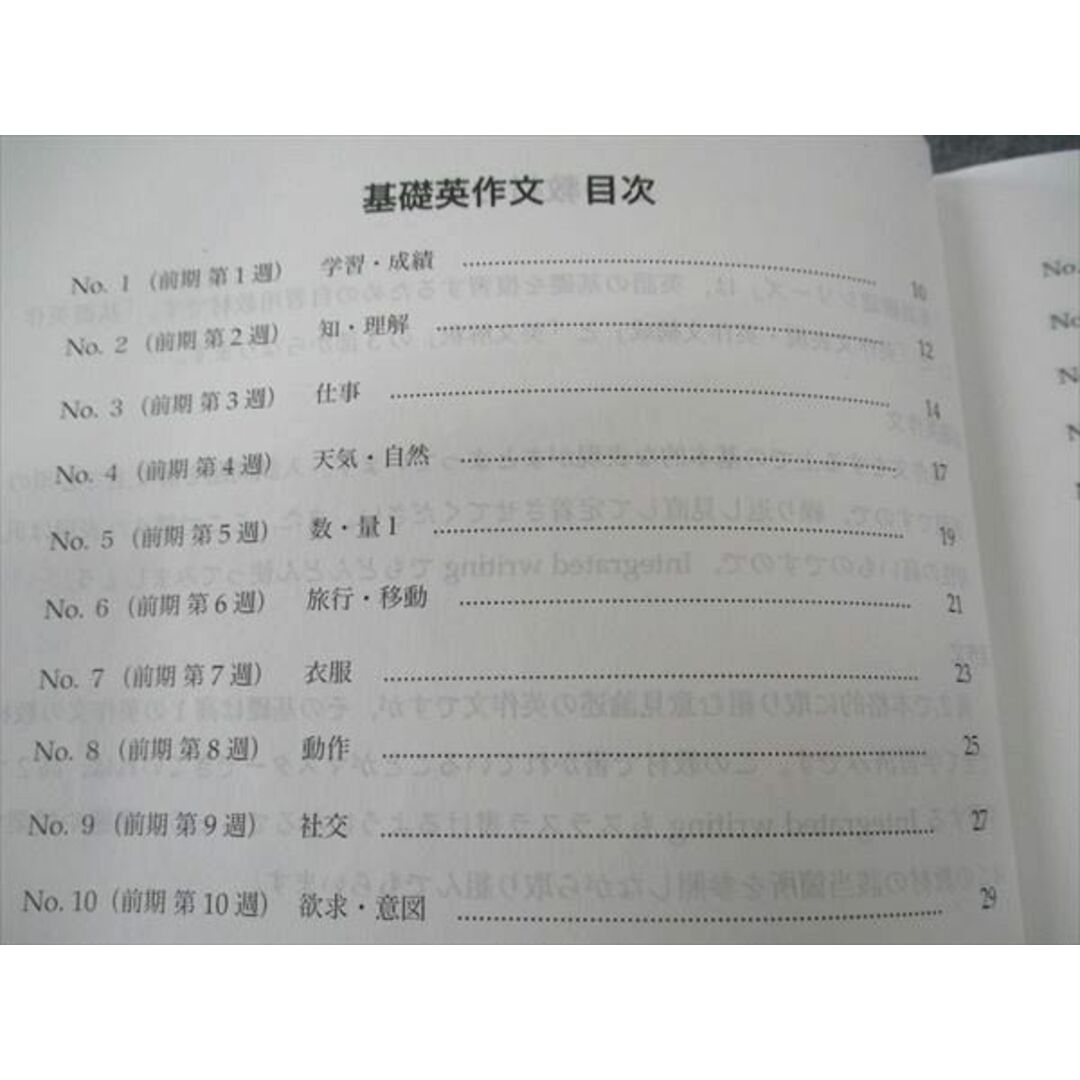 基礎英作文 目次
No. 1 (前期 第1週) 学習・成績 10
No. 2 (前期 第2週) 知・理解 12
No. 3 (前期 第3週) 仕事 14
No. 4 (前期 第4週) 天気・自然 17
No. 5 (前期 第5週) 数・量 I 19
No. 6 (前期 第6週) 旅行・移動 21
No. 7 (前期 第7週) 衣服 23
No. 8 (前期 第8週) 動作 25
No. 9 (前期 第9週) 社交 27
No. 10 (前期 第10週) 欲求・意図 29
No.
No.
No